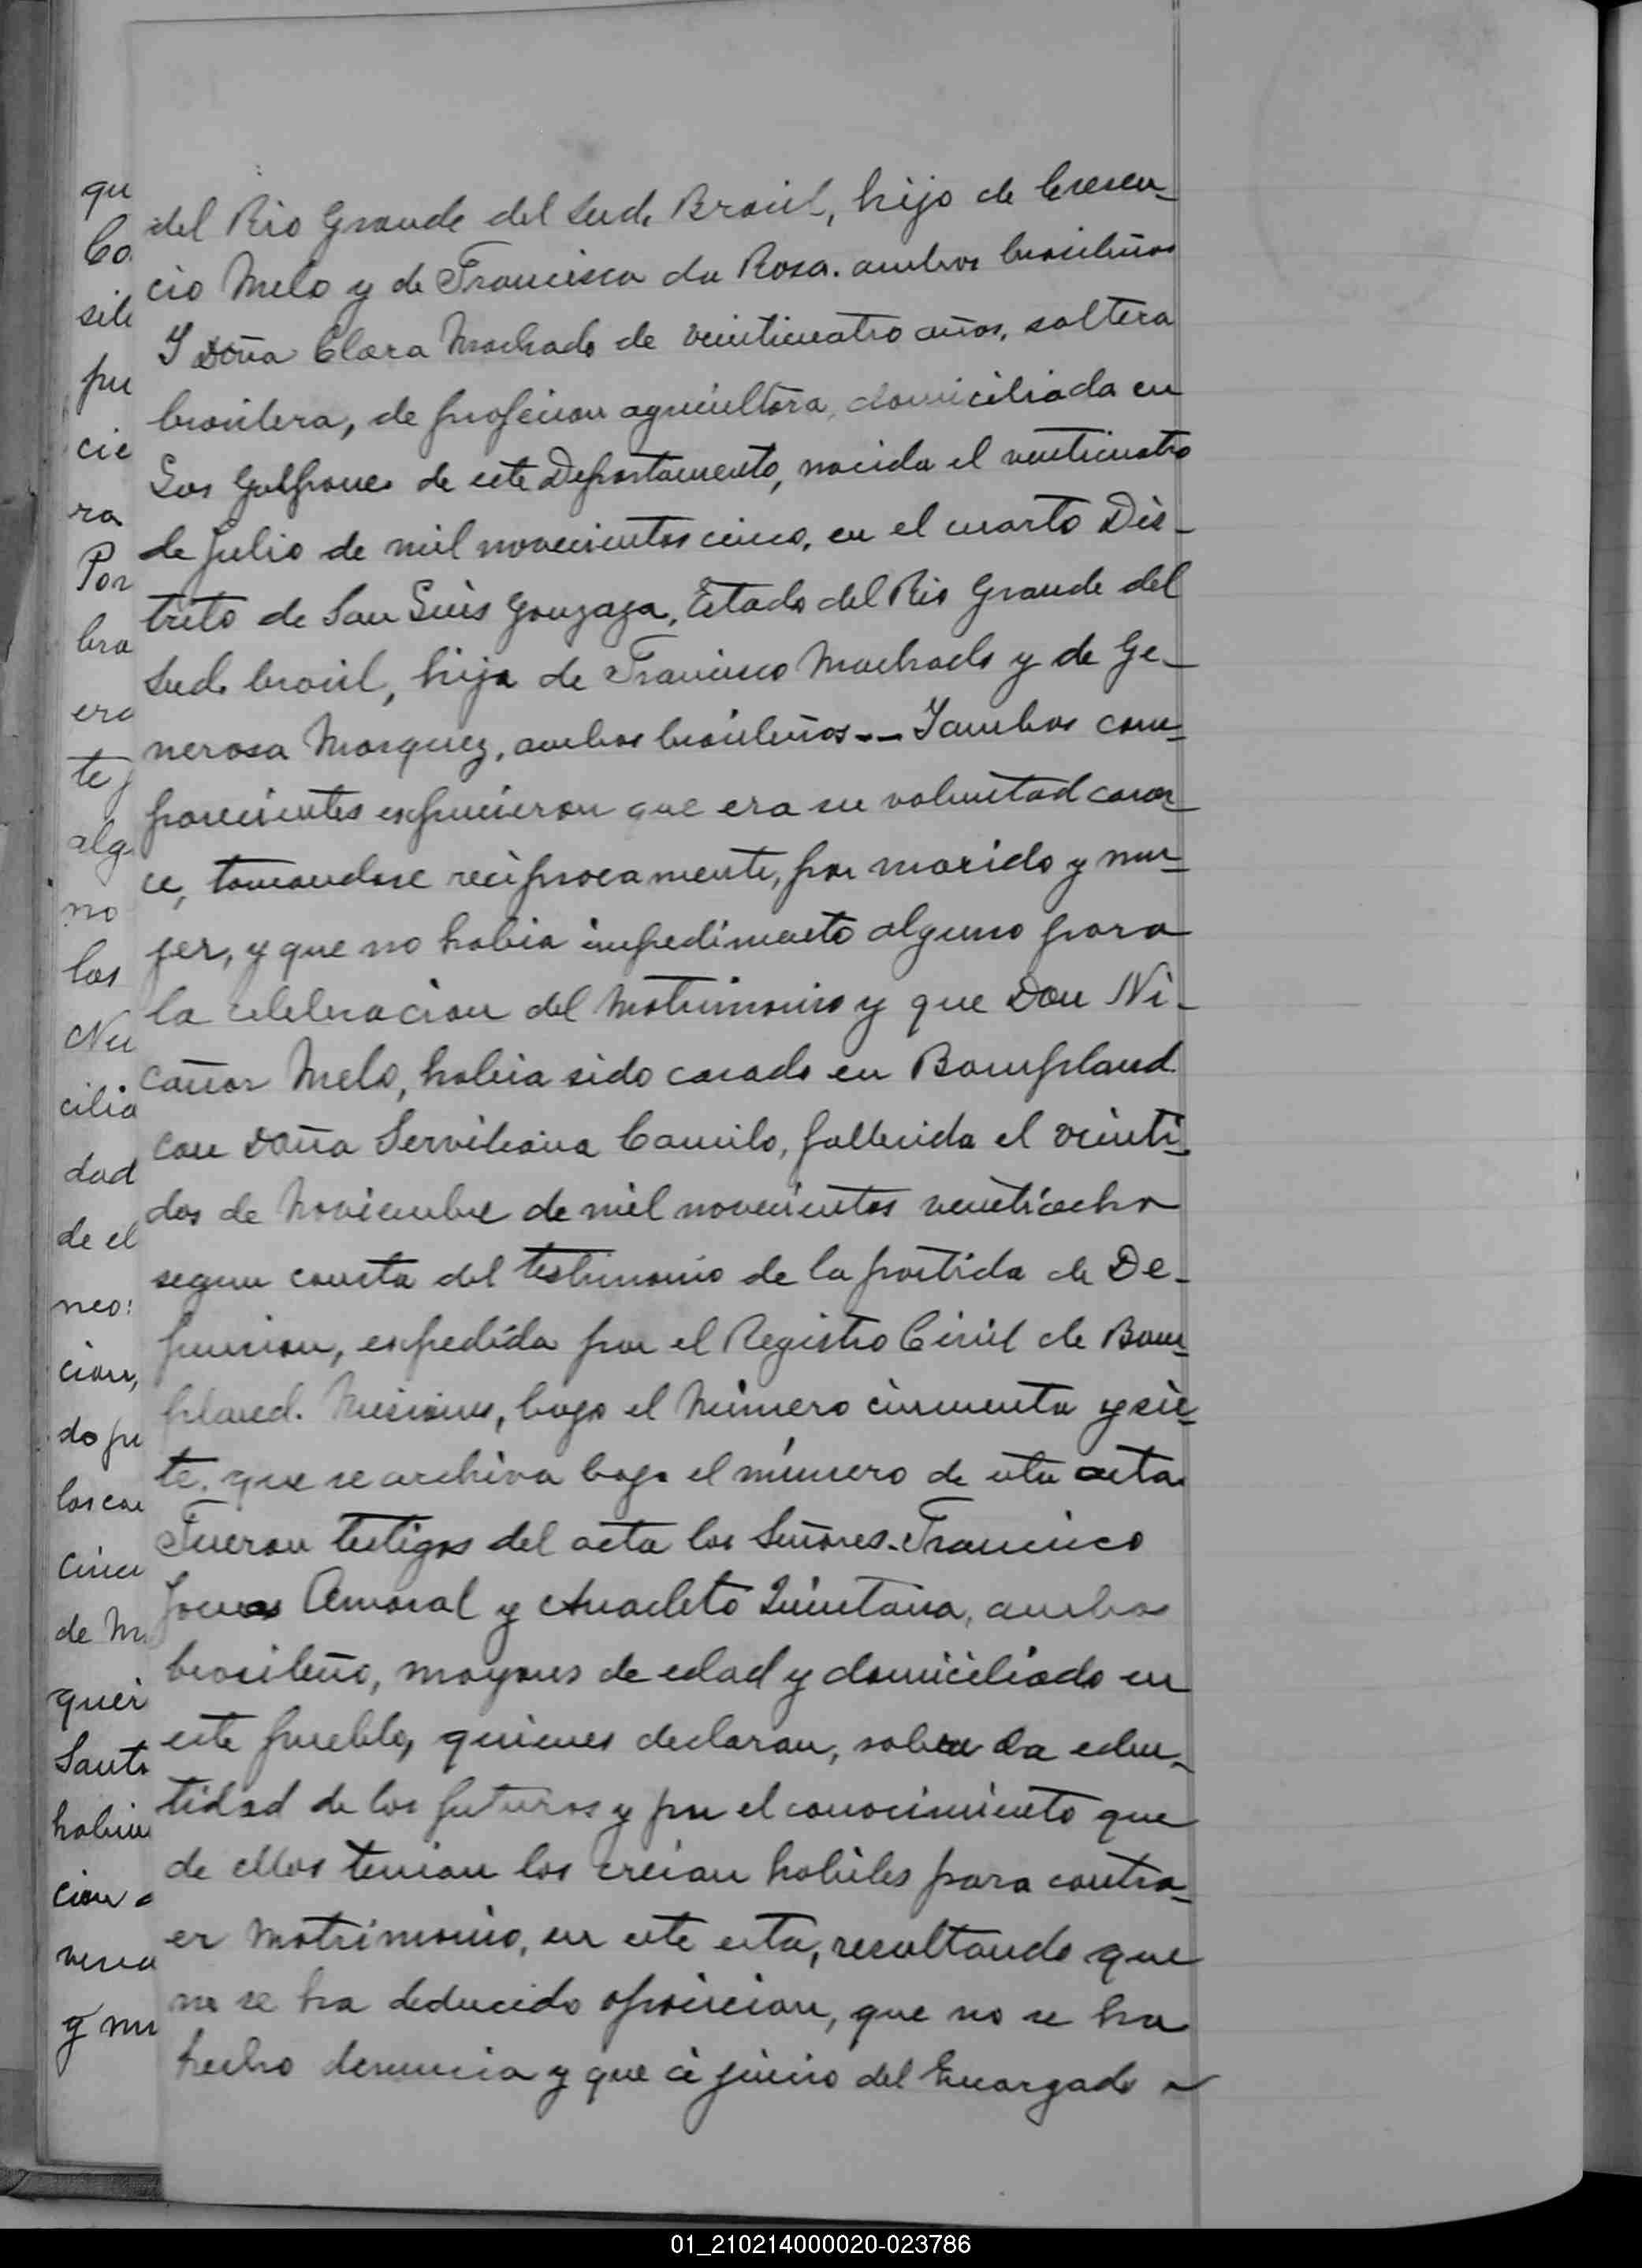 del Rio Grande del Sud, Brasil, hijo de Cresen-
cio Melo y de Francisca da Rosa. ambos brasileños
Y Doña Clara Machado de veinticuatro años, soltera
brasilera, de profecion agricultora, domiciliada en
Los Galpones de este Departamento, nacida el venticuatro
de Julio de mil novecientos cinco, en el cuarto Dis-
trito de San Luis Gonzaga, Estado del Rio Grande del
Sud. brasil, hija de Francisco Machado y de Ge-
nerosa Marquez, ambos brasileños -- Y ambos com-
parecientes espucieron que era su voluntad casar-
ce, tomandose reciprocamente, por marido y mu-
jer, y que no habia impedimento alguno para
la celebracion del Matrimonio y que Don Ni-
cañor Melo, habia sido casado en Bompland
con Doña Serviliana Camilo, fallecida el veinti-
dos de Noviembre de mil novecientos veintiocho
segun consta del testimonio de la partida de De-
funcion, espedida por el Registro Civil de Bom-
pland. Misiones, bajo el Número cincuenta y sie-
te, que se archiva bajo el número de esta acta
Fueron testigos del acta los Señores. Francisco
Amaral y Anacleto Quintana, ambos
brasileño, mayores de edad y domiciliado en
este pueblo, quienes declaran, sobre la eden-
tidad de los futuros y por el conocimiento que
de ellos tenian los creian habiles para contra-
er Matrimonio, en este esta, resultando que
no se ha deducido oposicion, que no se ha
hecho denuncia y que à juicio del Encargado
qu
Co
sile
pu
cie
ra
Por
bra
era
te
alg
no
los
Nu
cilia
dad
de el
neo
cion,
do pu
los con
cinc
de M
quei
Sant
habien
cion
vena
y mu
01_210214000020-023786